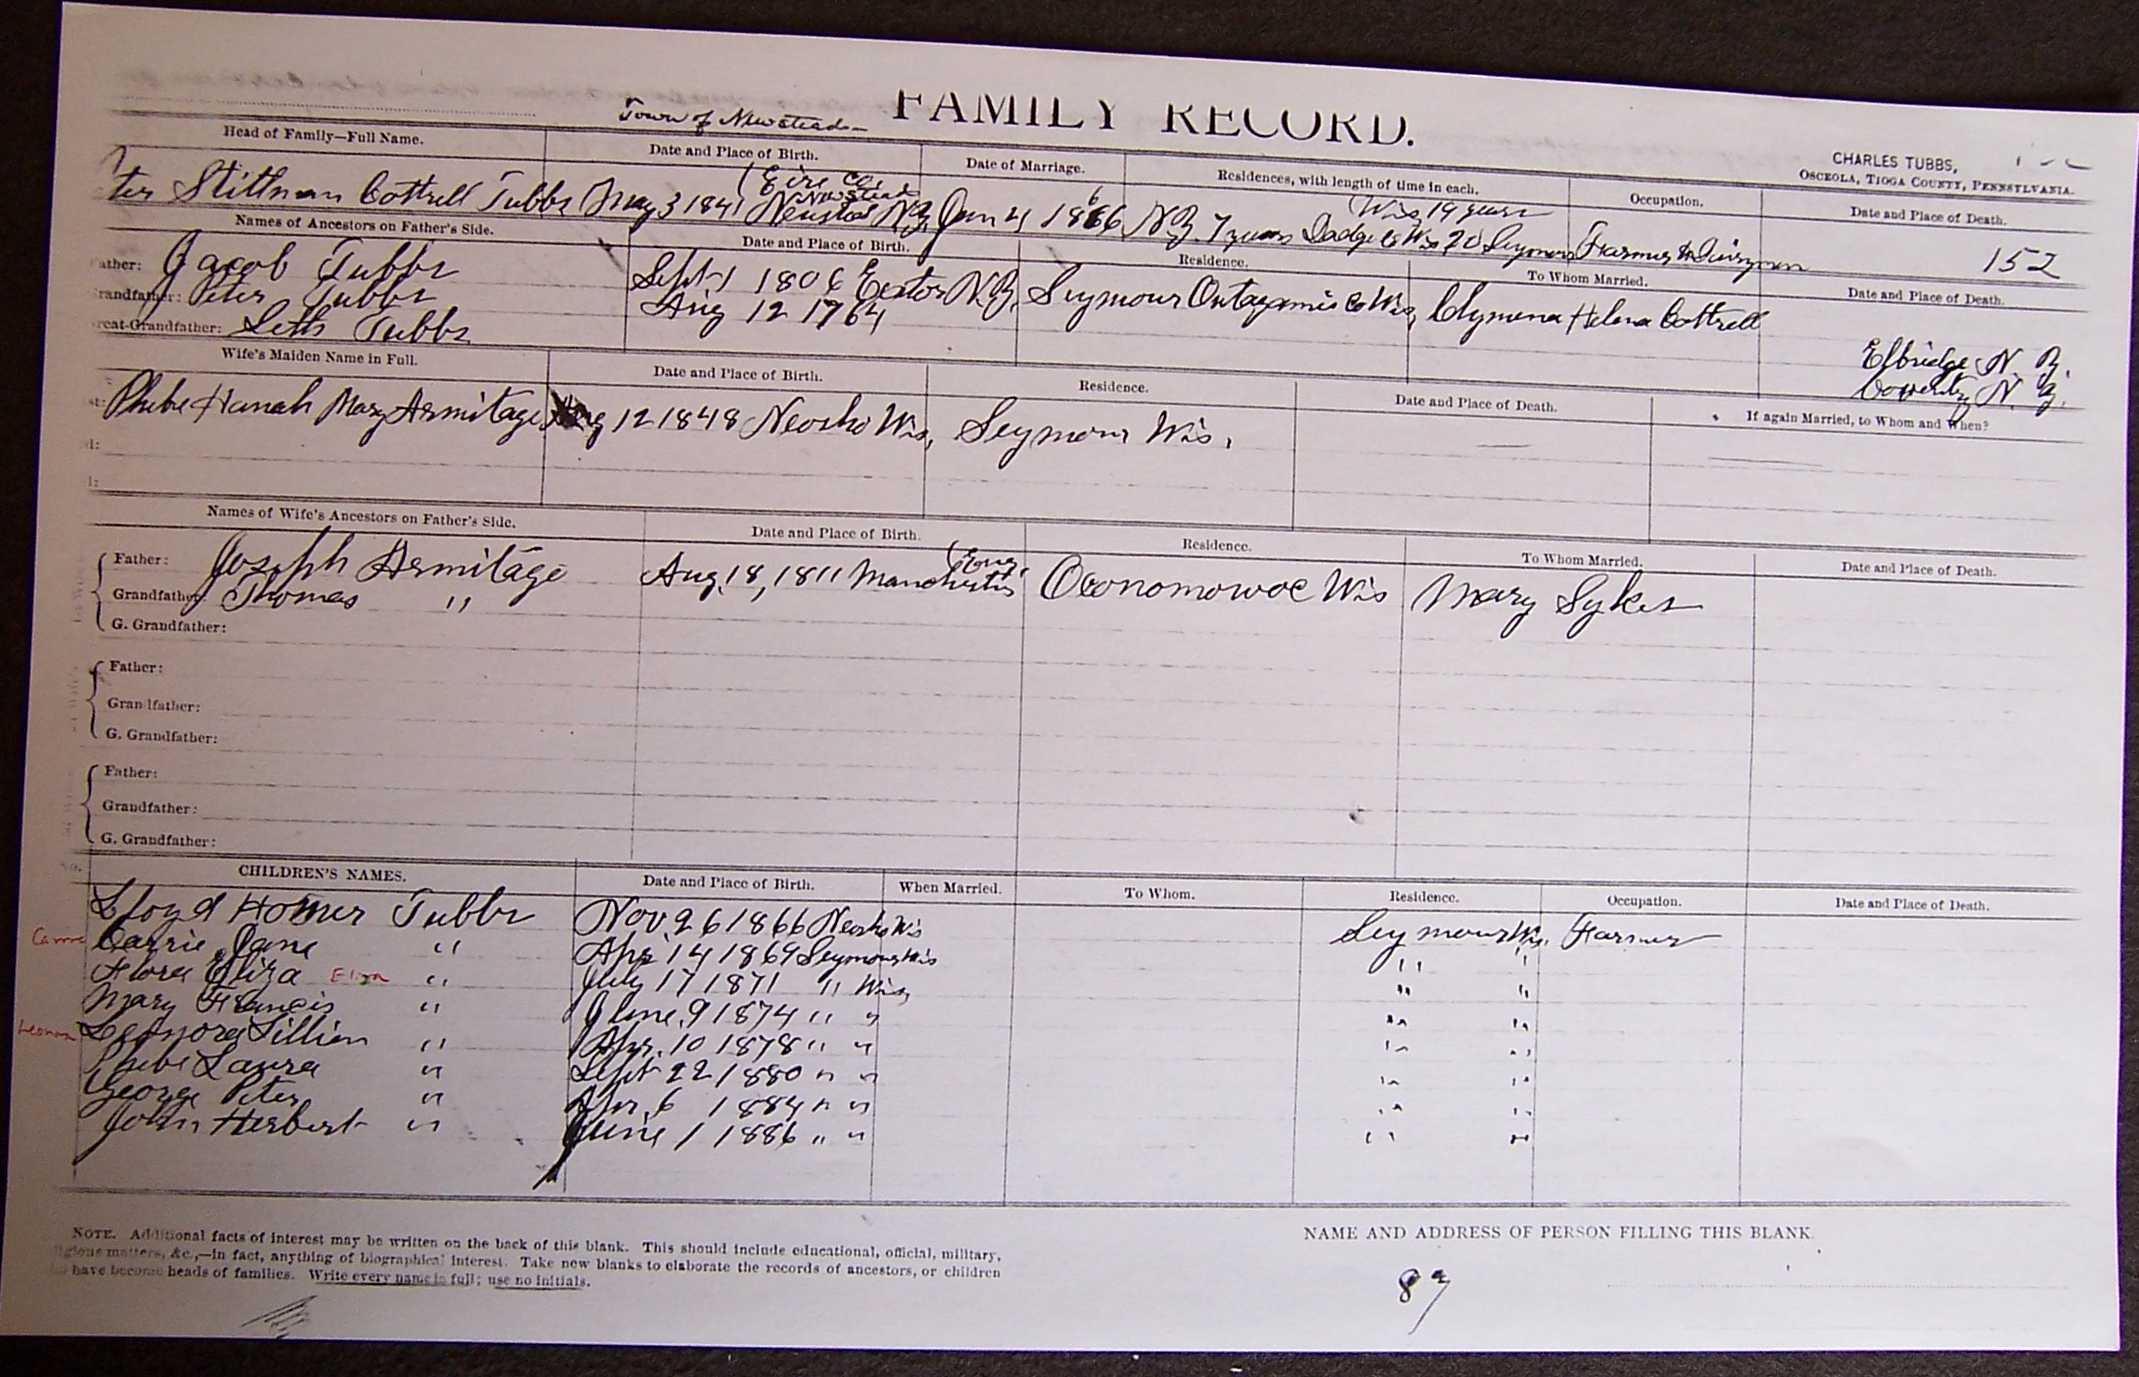 Town of Newstead
FAMILY RECORD.
CHARLES TUBBS,
OSCEOLA, TIOGA COUNTY, PENNSYLVANIA.
Head of Family—Full Name. Date and Place of Birth. Date of Marriage. Residences, with length of time in each. Occupation. Date and Place of Death.
(Eire Co. Newstead Wis 19 years
ter Stillman Cottrell Tubbs May 3 1841 N.Y. Jan 4 1866 N.Y. 7 years Dodge Co Wis 20 Seymour Farmer & Dairyman 152
Names of Ancestors on Father's Side. Date and Place of Birth. Residence. To Whom Married. Date and Place of Death.
ather: Jacob Tubbs Sept 1 1806 N.Y. Seymour Outagamie Co Wis, Clymena Helena Cottrell
randfather: Peter Tubbs Aug 12 1764 Elbridge N. Y.
reat-Grandfather: Seth Tubbs Coventry N. Y.
Wife's Maiden Name in Full. Date and Place of Birth. Residence. Date and Place of Death. If again Married, to Whom and When?
st: Phebe Hanah Mary Armitage Aug 12 1848 Neosho Wis, Seymour Wis, —
d:
d:
Names of Wife's Ancestors on Father's Side. Date and Place of Birth. Residence. To Whom Married. Date and Place of Death.
(Eng.
Father: Joseph Armitage Aug, 18, 1811 Manchester Oconomowoc Wis Mary Sykes
Grandfather: Thomas "
G. Grandfather:
Father:
Grandfather:
G. Grandfather:
Father:
Grandfather:
G. Grandfather:
No. CHILDREN'S NAMES. Date and Place of Birth. When Married. To Whom. Residence. Occupation. Date and Place of Death.
Lloyd Homer Tubbs Nov 26 1866 Neosho Wis Seymour Wis. Farmer
Carrie Carrie Jane " Apr 14 1869 Seymour Wis " "
Flora Eliza Eliza " July 17 1871 " Wis, " "
Mary Francis " June, 9 1874 " " " "
Leonora Leonora Lillian " Apr. 10 1878 " " " "
Phebe Laura " Sept 22 1880 " " " "
George Peter " Apr, 6 1884 " " " "
John Herbert " June 1 1886 " " " "
NOTE. Additional facts of interest may be written on the back of this blank. This should include educational, official, military,
igious matters, &c.,—in fact, anything of biographical interest. Take new blanks to elaborate the records of ancestors, or children
have become heads of families. Write every name in full; use no initials.
NAME AND ADDRESS OF PERSON FILLING THIS BLANK.
87